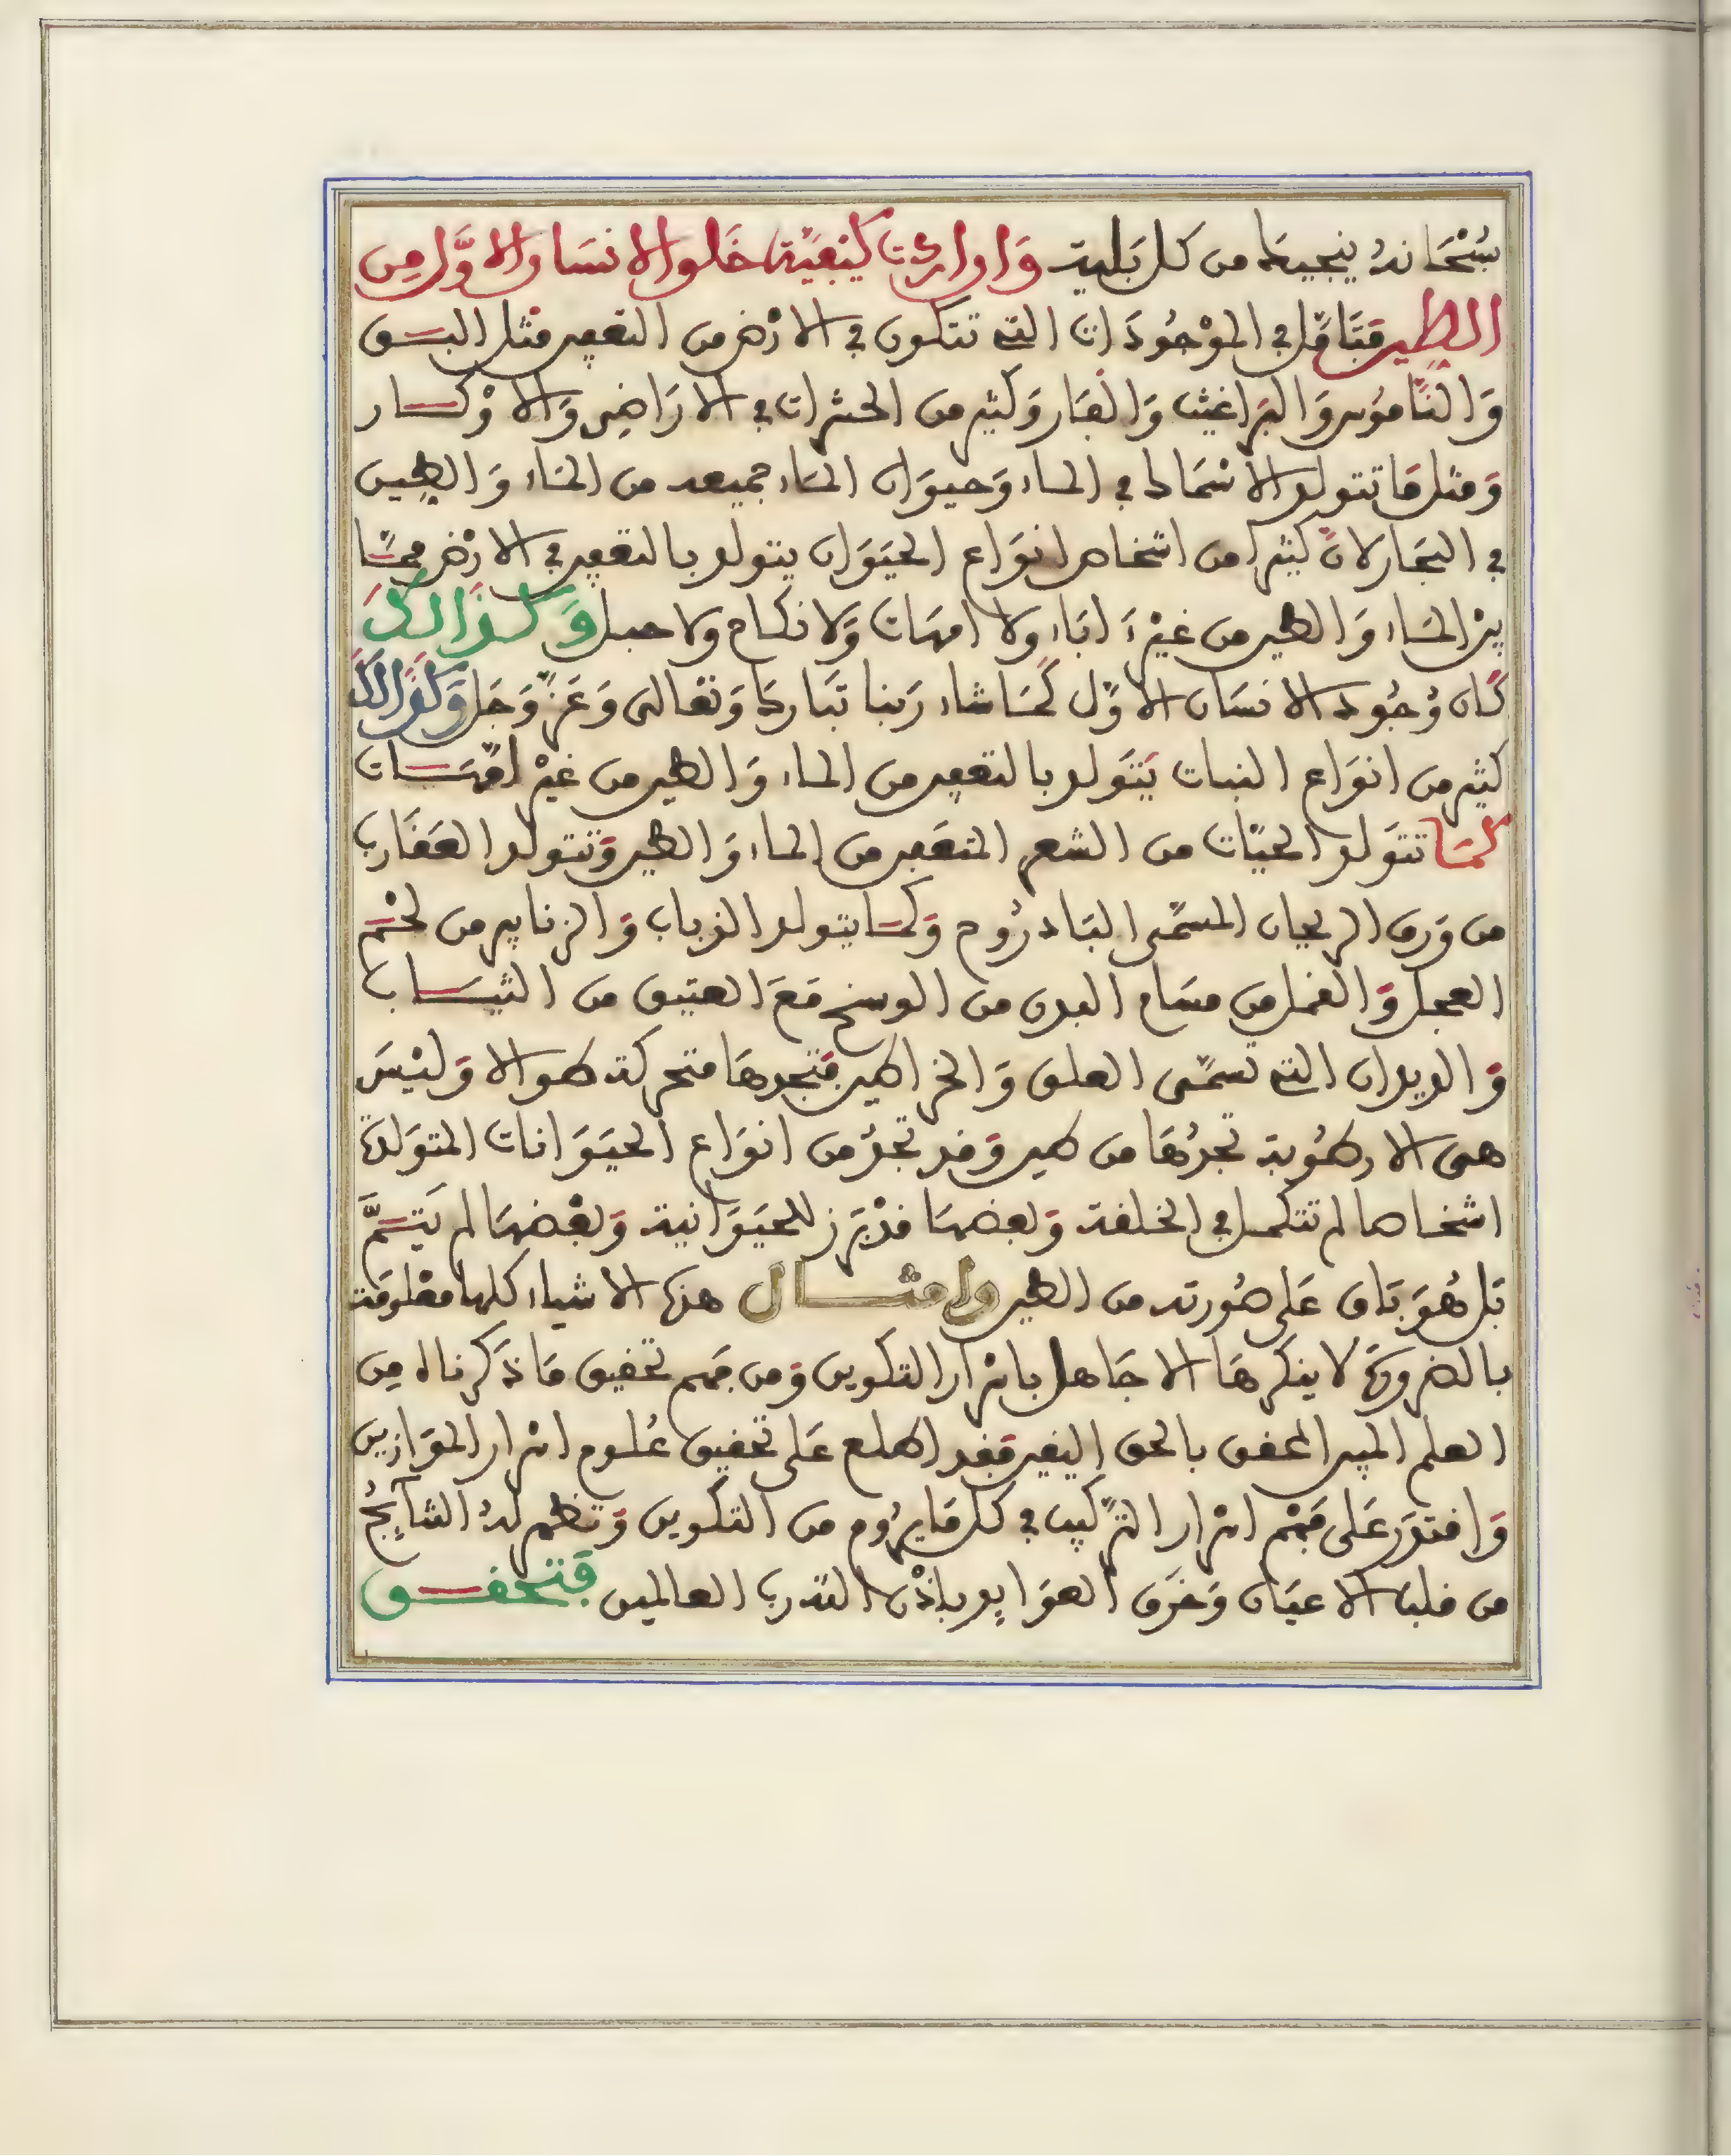 سُبْحَانهُ ينجينا من كل بَلية وَاذا اردت كيفيَّة خَلق الانسَان الاوَّل مِن
الطين فتَامَّل في الموْجُودَات التي تتكون في الارْض من التعفين مثل البـق
وَالنَّامُوس وَالبرَاغيث وَالفَار وَكثير من الحشرات في الارَاضِى وَالاوْكـار
وَمثل مَا تتولد الاسْمَاك في الماء وَحيوَان المَاء جميعه من المَاء وَالطِين
في البحَار لانَّ كثيرا من اشخاص انوَاع الحيَوَان يتولد بالتعفين في الارْض ممَّا
بيْن المَاء وَالطين من غيْر ءَاباء ولا امهَات وَلا نكاح ولا حبـل وَكـذَالكَ
كَان وُجُود الانسَان الاوَّل كَمَا شاء رَبنا تبَارك وَتعَالى وَعَزَّ وَجَل وَكذَالكَ
كثير من انوَاع النبات يَتَولد بالتعفين من الماء وَالطين من غيْر امّهَـات
كمَا تتوَلد الحيَّات من الشعر المتعَفن من الماء وَالطين وَتتولد العقَارب
من وَرق الريحان المسَمَّى البَادرُوج وَكمـا يتولد الذباب وَالزنابير من لحْـم
العجل وَالقمل من مسَام البدن من الوسخ مَعَ العتيق من الثيـاب
وَالديدان التي تسمَّى العلق وَالخرَاطين فتجدهَا متحركة طوالا وَليْسَ
هى الا رطُوبة تجدُهَا من طين وَقد تجدُ من انوَاع الحيَوَانات المتوَلدة
اشخـاصا لم تتكمـل في الخلقة وَبعضهَا قدْ بَرَز للحيَوَانية وَبعْضهَا لم يَتـمَّ
بَل هُوَ بَاق عَلى صُورته من الطين وامثـــال هذه الاشياء كلها معْلومَة
بالضرورَة لا ينكرهَا الا جَاهل باسْرار التكوين وَمن فهم تحقيق مَا ذَكرناه مِن
العلم المبين المحقق بالحق اليقين فقد اطلع عَلى تحقيق عُلـوم اسْرار الموَازين
وَاقتدَر عَلى فَهْم اسْرار الترَّكيب في كل مَا يرُوم من التكوين وَتظهر لهُ النتَايجُ
من قلب الاعيَان وَخرَق العوَايد باذْن الله رب العالمين فَتحقـــق